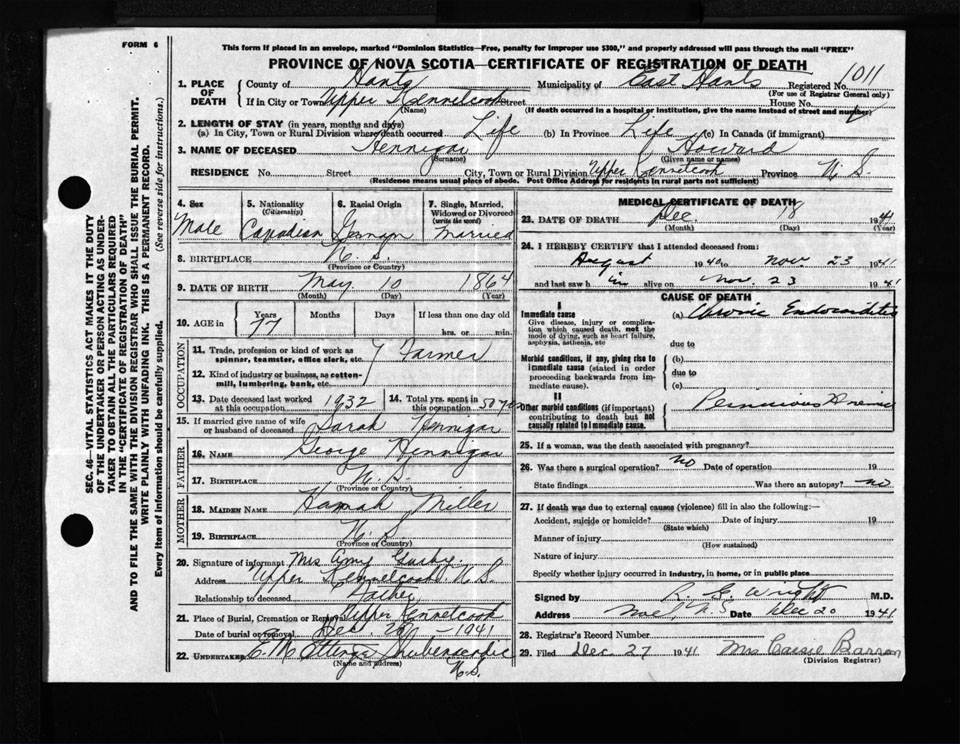 FORM 6
This form if placed in an envelope, marked "Dominion Statistics—Free, penalty for improper use $300," and properly addressed will pass through the mail "FREE"
PROVINCE OF NOVA SCOTIA—CERTIFICATE OF REGISTRATION OF DEATH
1. PLACE OF DEATH County of Hants Municipality of East Hants Registered No. 1011
(For use of Registrar General only)
If in City or Town Upper Kennetcook Street House No.
(Name) (If death occurred in a hospital or institution, give the name instead of street and number)
2. LENGTH OF STAY (in years, months and days)
(a) In City, Town or Rural Division where death occurred Life (b) In Province Life (c) In Canada (if immigrant)
3. NAME OF DECEASED Hennigar Howard
(Surname) (Given name or names)
RESIDENCE No. Street City, Town or Rural Division Upper Kennetcook Province N. S.
(Residence means usual place of abode. Post Office Address for residents in rural parts not sufficient)
SEC. 46—VITAL STATISTICS ACT MAKES IT THE DUTY
OF THE UNDERTAKER OR PERSON ACTING AS UNDER-
TAKER TO OBTAIN ALL THE PARTICULARS REQUIRED
IN THE "CERTIFICATE OF REGISTRATION OF DEATH"
AND TO FILE THE SAME WITH THE DIVISION REGISTRAR WHO SHALL ISSUE THE BURIAL PERMIT.
WRITE PLAINLY WITH UNFADING INK. THIS IS A PERMANENT RECORD.
Every item of information should be carefully supplied. (See reverse side for instructions.)
4. Sex 5. Nationality (Citizenship) 6. Racial Origin 7. Single, Married, Widowed or Divorced (write the word)
Male Canadian German Married
8. BIRTHPLACE N. S.
(Province or Country)
9. DATE OF BIRTH May 10 1864
(Month) (Day) (Year)
10. AGE in Years Months Days If less than one day old
77 hrs. or min.
OCCUPATION
11. Trade, profession or kind of work as spinner, teamster, office clerk, etc. Farmer
12. Kind of industry or business, as cotton-mill, lumbering, bank, etc.
13. Date deceased last worked at this occupation 1932 14. Total yrs. spent in this occupation 50 yrs
15. If married give name of wife or husband of deceased Sarah Hennigar
FATHER
16. NAME George Hennigar
17. BIRTHPLACE N. S.
(Province or Country)
MOTHER
18. MAIDEN NAME Hannah Miller
19. BIRTHPLACE N. S.
(Province or Country)
20. Signature of informant Mrs Amy
Address Upper Kennetcook N. S.
Relationship to deceased Father
21. Place of Burial, Cremation or Removal Upper Kennetcook
Date of burial or removal Dec. 20 1941
22. UNDERTAKER E M Ettinger Shubenacadie
(Name and address) N. S.
MEDICAL CERTIFICATE OF DEATH
23. DATE OF DEATH Dec 18 1941
(Month) (Day) (Year)
24. I HEREBY CERTIFY that I attended deceased from:
August 1940 to Nov 23 1941
and last saw him alive on Nov. 23 1941
CAUSE OF DEATH
I
Immediate cause (a) Chronic Endocarditis
Give disease, injury or complica-
tion which caused death, not the
mode of dying, such as heart failure,
asphyxia, asthenia, etc due to
Morbid conditions, if any, giving rise to (b)
immediate cause (stated in order
proceeding backwards from im-
mediate cause). due to
(c)
II
Other morbid conditions (if important) Pernicious Anemia
contributing to death but not
causally related to immediate cause.
25. If a woman, was the death associated with pregnancy?
26. Was there a surgical operation? no Date of operation 19
State findings Was there an autopsy? no
27. If death was due to external causes (violence) fill in also the following:—
Accident, suicide or homicide? Date of injury 19
(State which)
Manner of injury
(How sustained)
Nature of injury
Specify whether injury occurred in industry, in home, or in public place
Signed by R. G. Wright M.D.
Address Noel, N. S. Date Dec 20 1941
28. Registrar's Record Number
29. Filed Dec 27 1941 Mrs Cassie Barron
(Division Registrar)